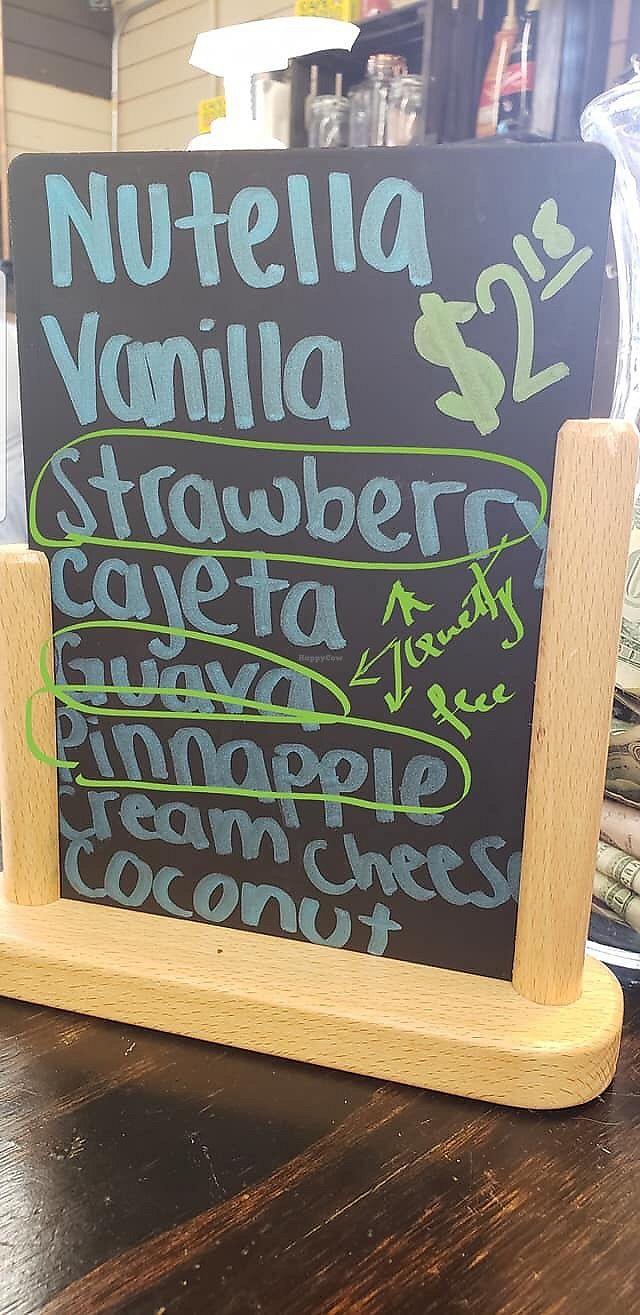 Nutella
$2.18
Vanilla
Strawberry
Cajeta
Guava
HappyCow
Pinnapple
free
Cream cheese
Coconut